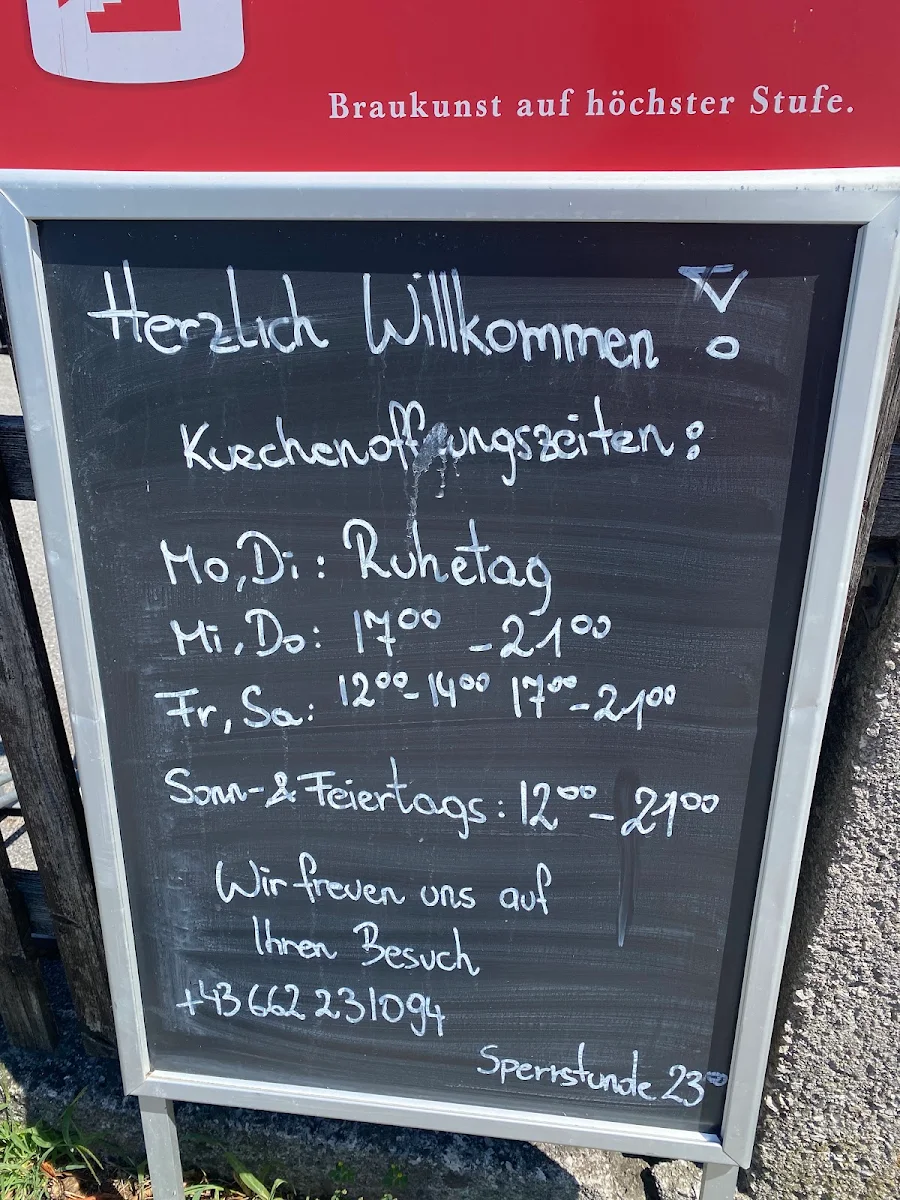 Braukunst auf höchster Stufe.
Herzlich Willkommen !
Kuechenoffnungszeiten:
Mo, Di: Ruhetag
Mi, Do: 17⁰⁰ - 21⁰⁰
Fr, Sa: 12⁰⁰-14⁰⁰ 17⁰⁰-21⁰⁰
Sonn-& Feiertags: 12⁰⁰ - 21⁰⁰
Wir freuen uns auf
Ihren Besuch
+43 662 231094
Sperrstunde 23⁰⁰